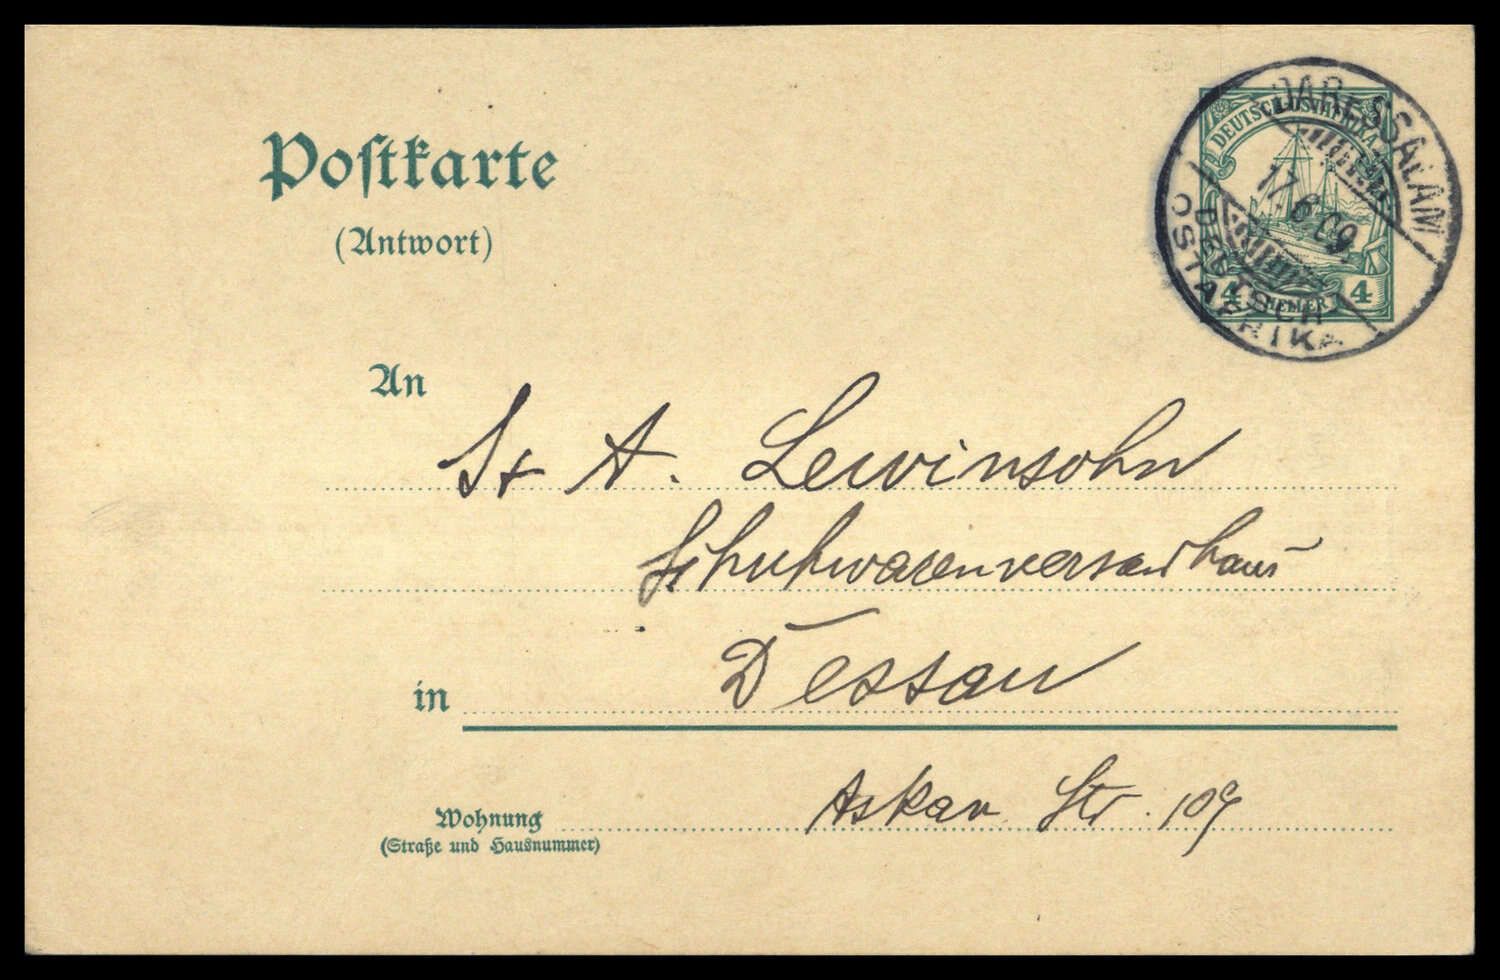 Postkarte
(Antwort)
DEUTSCH-OSTAFRIKA
4 HELLER 4
DARESSALAM
17.6.09.
DEUTSCH
OSTAFRIKA
An
A. Lewinsohn
Schuhwarenversandhaus
in Dessau
Wohnung Askan Str. 109
(Straße und Hausnummer)